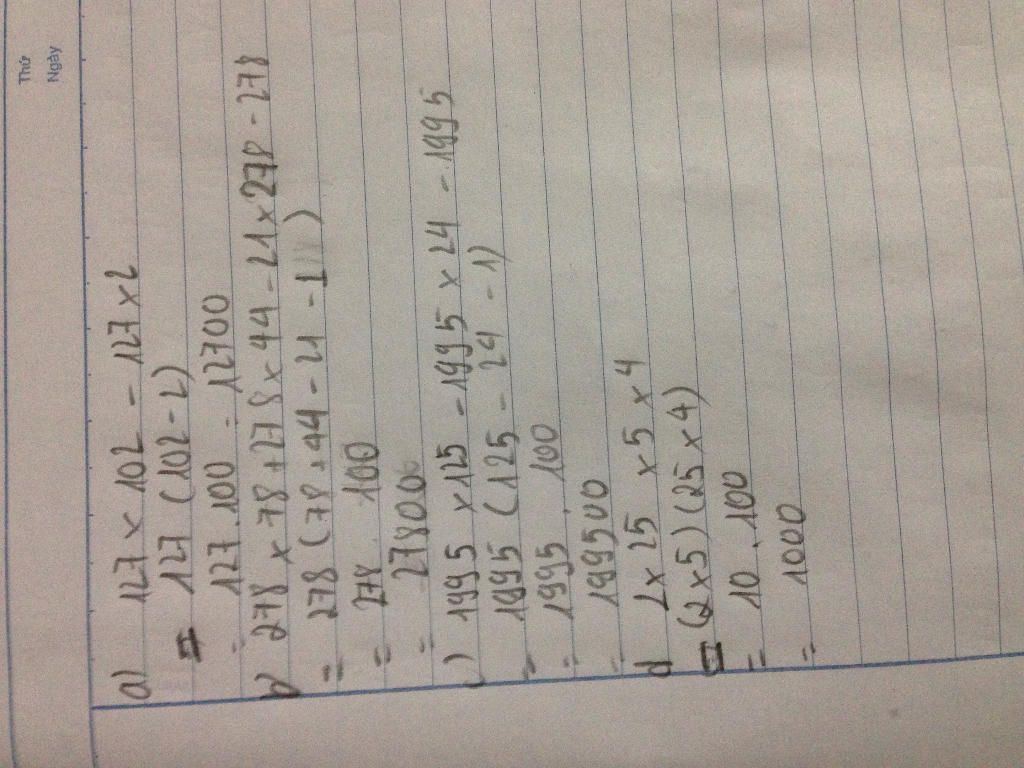 Thứ
Ngày
a) 127 x 102 - 127 x 2
= 127 (102 - 2)
= 127 . 100 = 12700
b) 278 x 78 + 278 x 44 - 21 x 278 - 278
= 278 (78 + 44 - 21 - 1)
= 278 100
= 27800
c) 1995 x 125 - 1995 x 24 - 1995
= 1995 (125 - 24 - 1)
= 1995 . 100
= 199500
d 2 x 25 x 5 x 4
= (2 x 5) (25 x 4)
= 10 . 100
= 1000